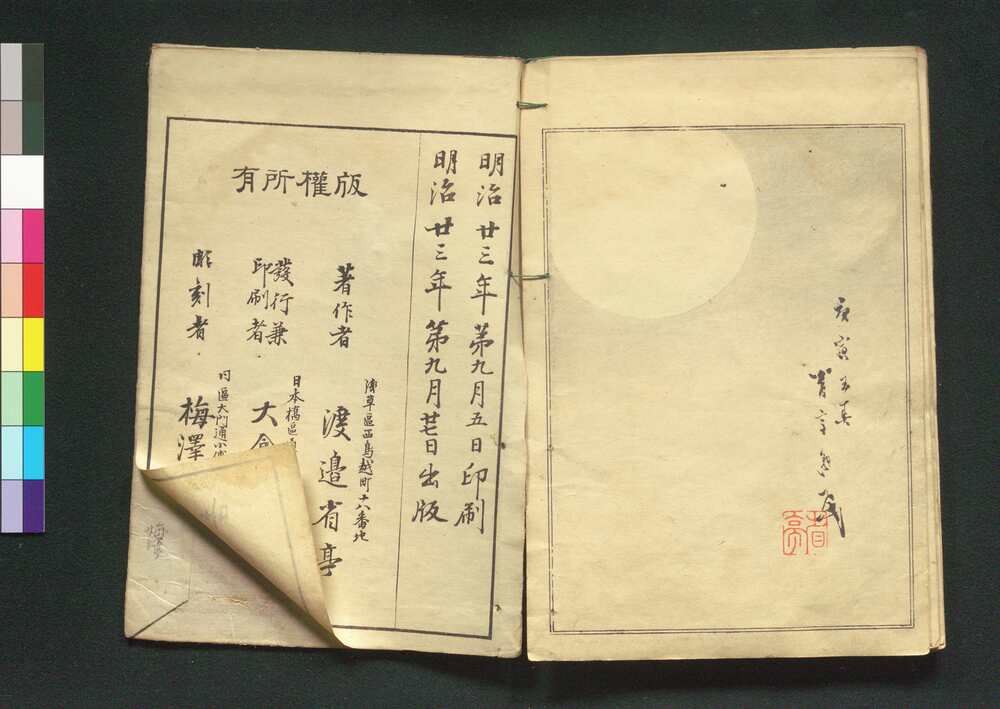 庚寅
省亭
明治廿三年第九月五日印刷
明治廿三年第九月廿日出版
版權所有
淺草區西鳥越町十八番地
著作者 渡邉省亭
日本橋區
發行兼
印刷者 大倉
同區大門通小傳
彫刻者 梅澤